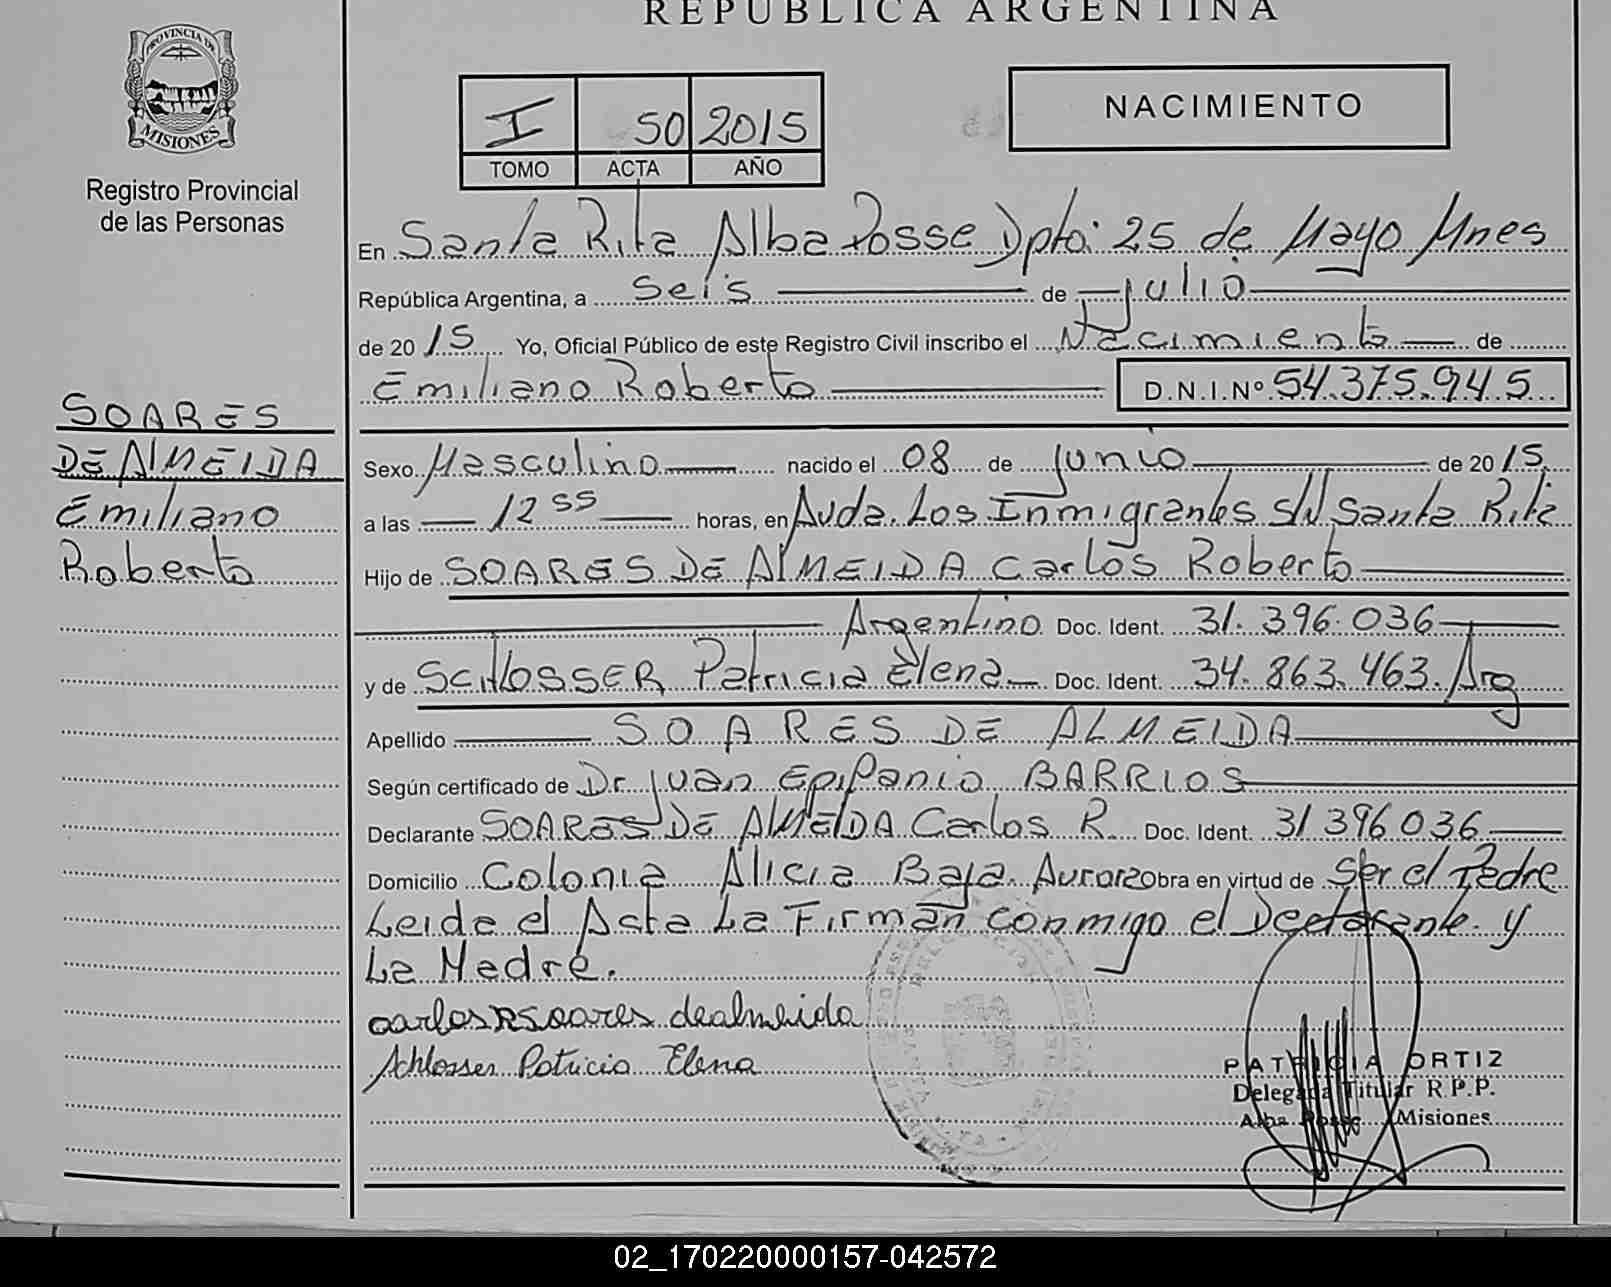 REPÚBLICA ARGENTINA
PROVINCIA DE
MISIONES
Registro Provincial
de las Personas
I 50 2015
TOMO ACTA AÑO
NACIMIENTO
En Santa Rita Alba Posse Dpto: 25 de Mayo Mnes
República Argentina, a seis de julio
de 2015 Yo, Oficial Público de este Registro Civil inscribo el Nacimiento de
Emiliano Roberto D.N.I.Nº 54.375.945
SOARES
DE ALMEIDA
Emiliano
Roberto
Sexo Masculino nacido el 08 de junio de 2015
a las 12 55 horas, en Avda. Los Inmigrantes S/N Santa Rita
Hijo de SOARES DE ALMEIDA Carlos Roberto
Argentino Doc. Ident. 31.396.036
y de SCHLOSSER Patricia Elena Doc. Ident. 34.863.463. Arg
Apellido SOARES DE ALMEIDA
Según certificado de Dr. Juan Epifanio BARRIOS
Declarante SOARES DE ALMEIDA Carlos R. Doc. Ident. 31 396 036
Domicilio Colonia Alicia Baja. Aurora Obra en virtud de ser el Padre
Leida el Acta La Firman conmigo el Declarante y
La Madre.
carlos R soares dealmeida
Schlosser Patricia Elena
PATRICIA ORTIZ
Delegada Titular R.P.P.
Alba Posse Misiones
02_170220000157-042572